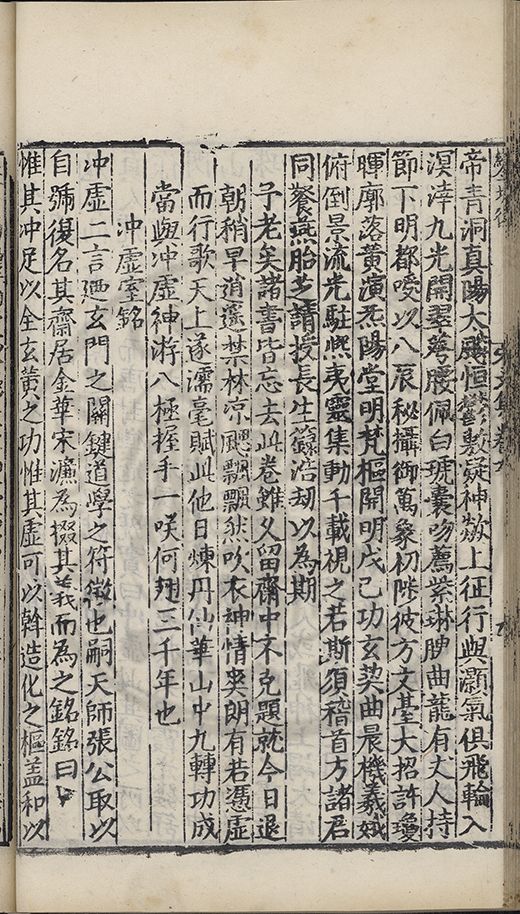 帝青洞真陽大殿恒鬱敷凝神欻上征行與灝氣俱飛輪入
溟涬九光開翠蕚腰佩白琥囊吻薦紫琳腴曲龍有丈人持
節下明都唆以八辰秘攝御萬象初陟彼方文臺大招許瓊
暉廓落黃演炁陽堂明梵樞開明戊己功玄䂮曲晨機羲娥
俯倒景流光駐熈夷靈集動千載視之若斯須稽首方諸君
同餐燕胎芝請授長生籙浩劫以為期
予老矣諸書皆忘去此卷雖久留齋中不克題就今日退
朝稍早逍遥禁林凉飈飄飄然吹衣神情奭朗有若憑虛
而行歌天上遂濡毫賦此他日煉丹仙華山中九轉功成
當與冲虛神游八極握手一咲何翅三千年也
冲虛室銘
冲虛二言廼玄門之關鍵道學之符徵也嗣天師張公取以
自號復名其齋居金華宋濂為掇其義而為之銘銘曰
惟其冲足以全玄黃之功惟其虛可以斡造化之樞盖和以